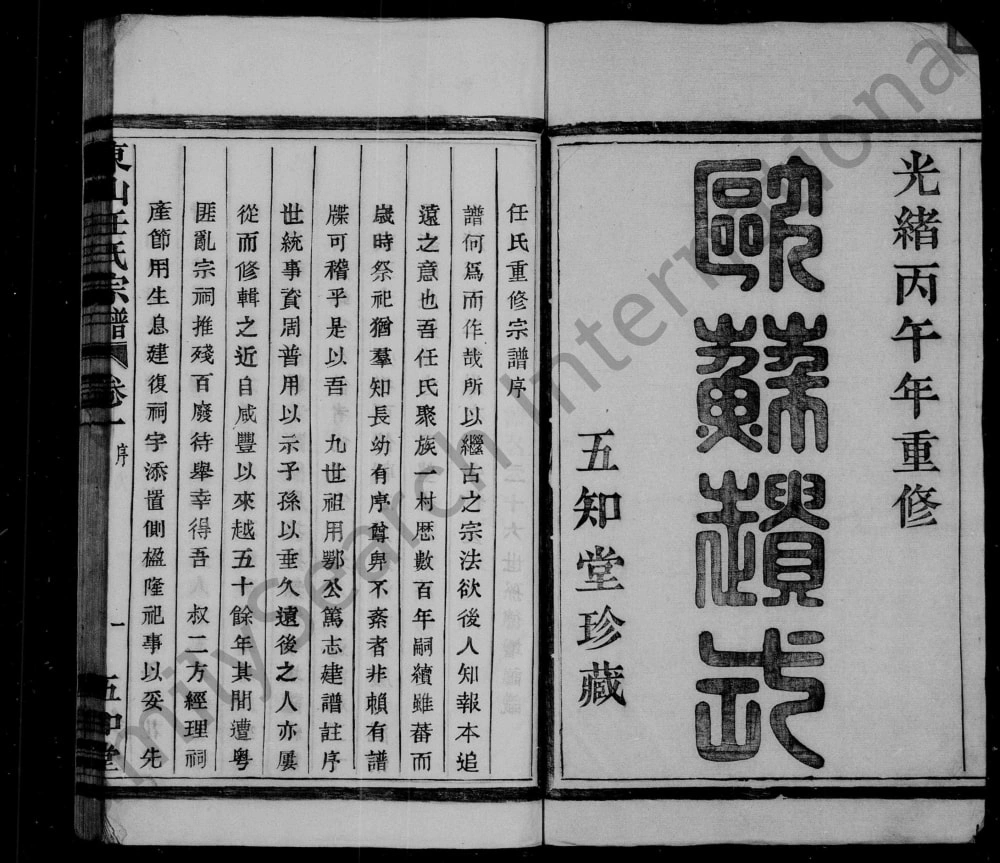 光緒丙午年重修
歐蘇遺式
五知堂珍藏
任氏重修宗譜序
譜何爲而作哉所以繼古之宗法欲後人知報本追
遠之意也吾任氏聚族一村歷數百年嗣續雖蕃而
歲時祭祀猶羣知長幼有序尊卑不紊者非賴有譜
牒可稽乎是以吾 九世祖用鄂公篤志建譜註序
世統事資周普用以示子孫以垂久遠後之人亦屢
從而修輯之近自咸豐以來越五十餘年其間遭粤
匪亂宗祠推殘百廢待舉幸得吾 叔二方經理祠
產節用生息建復祠宇添置側楹隆祀事以妥 先
東山任氏宗譜 卷一 序 一 五知堂
milySearch Internationa